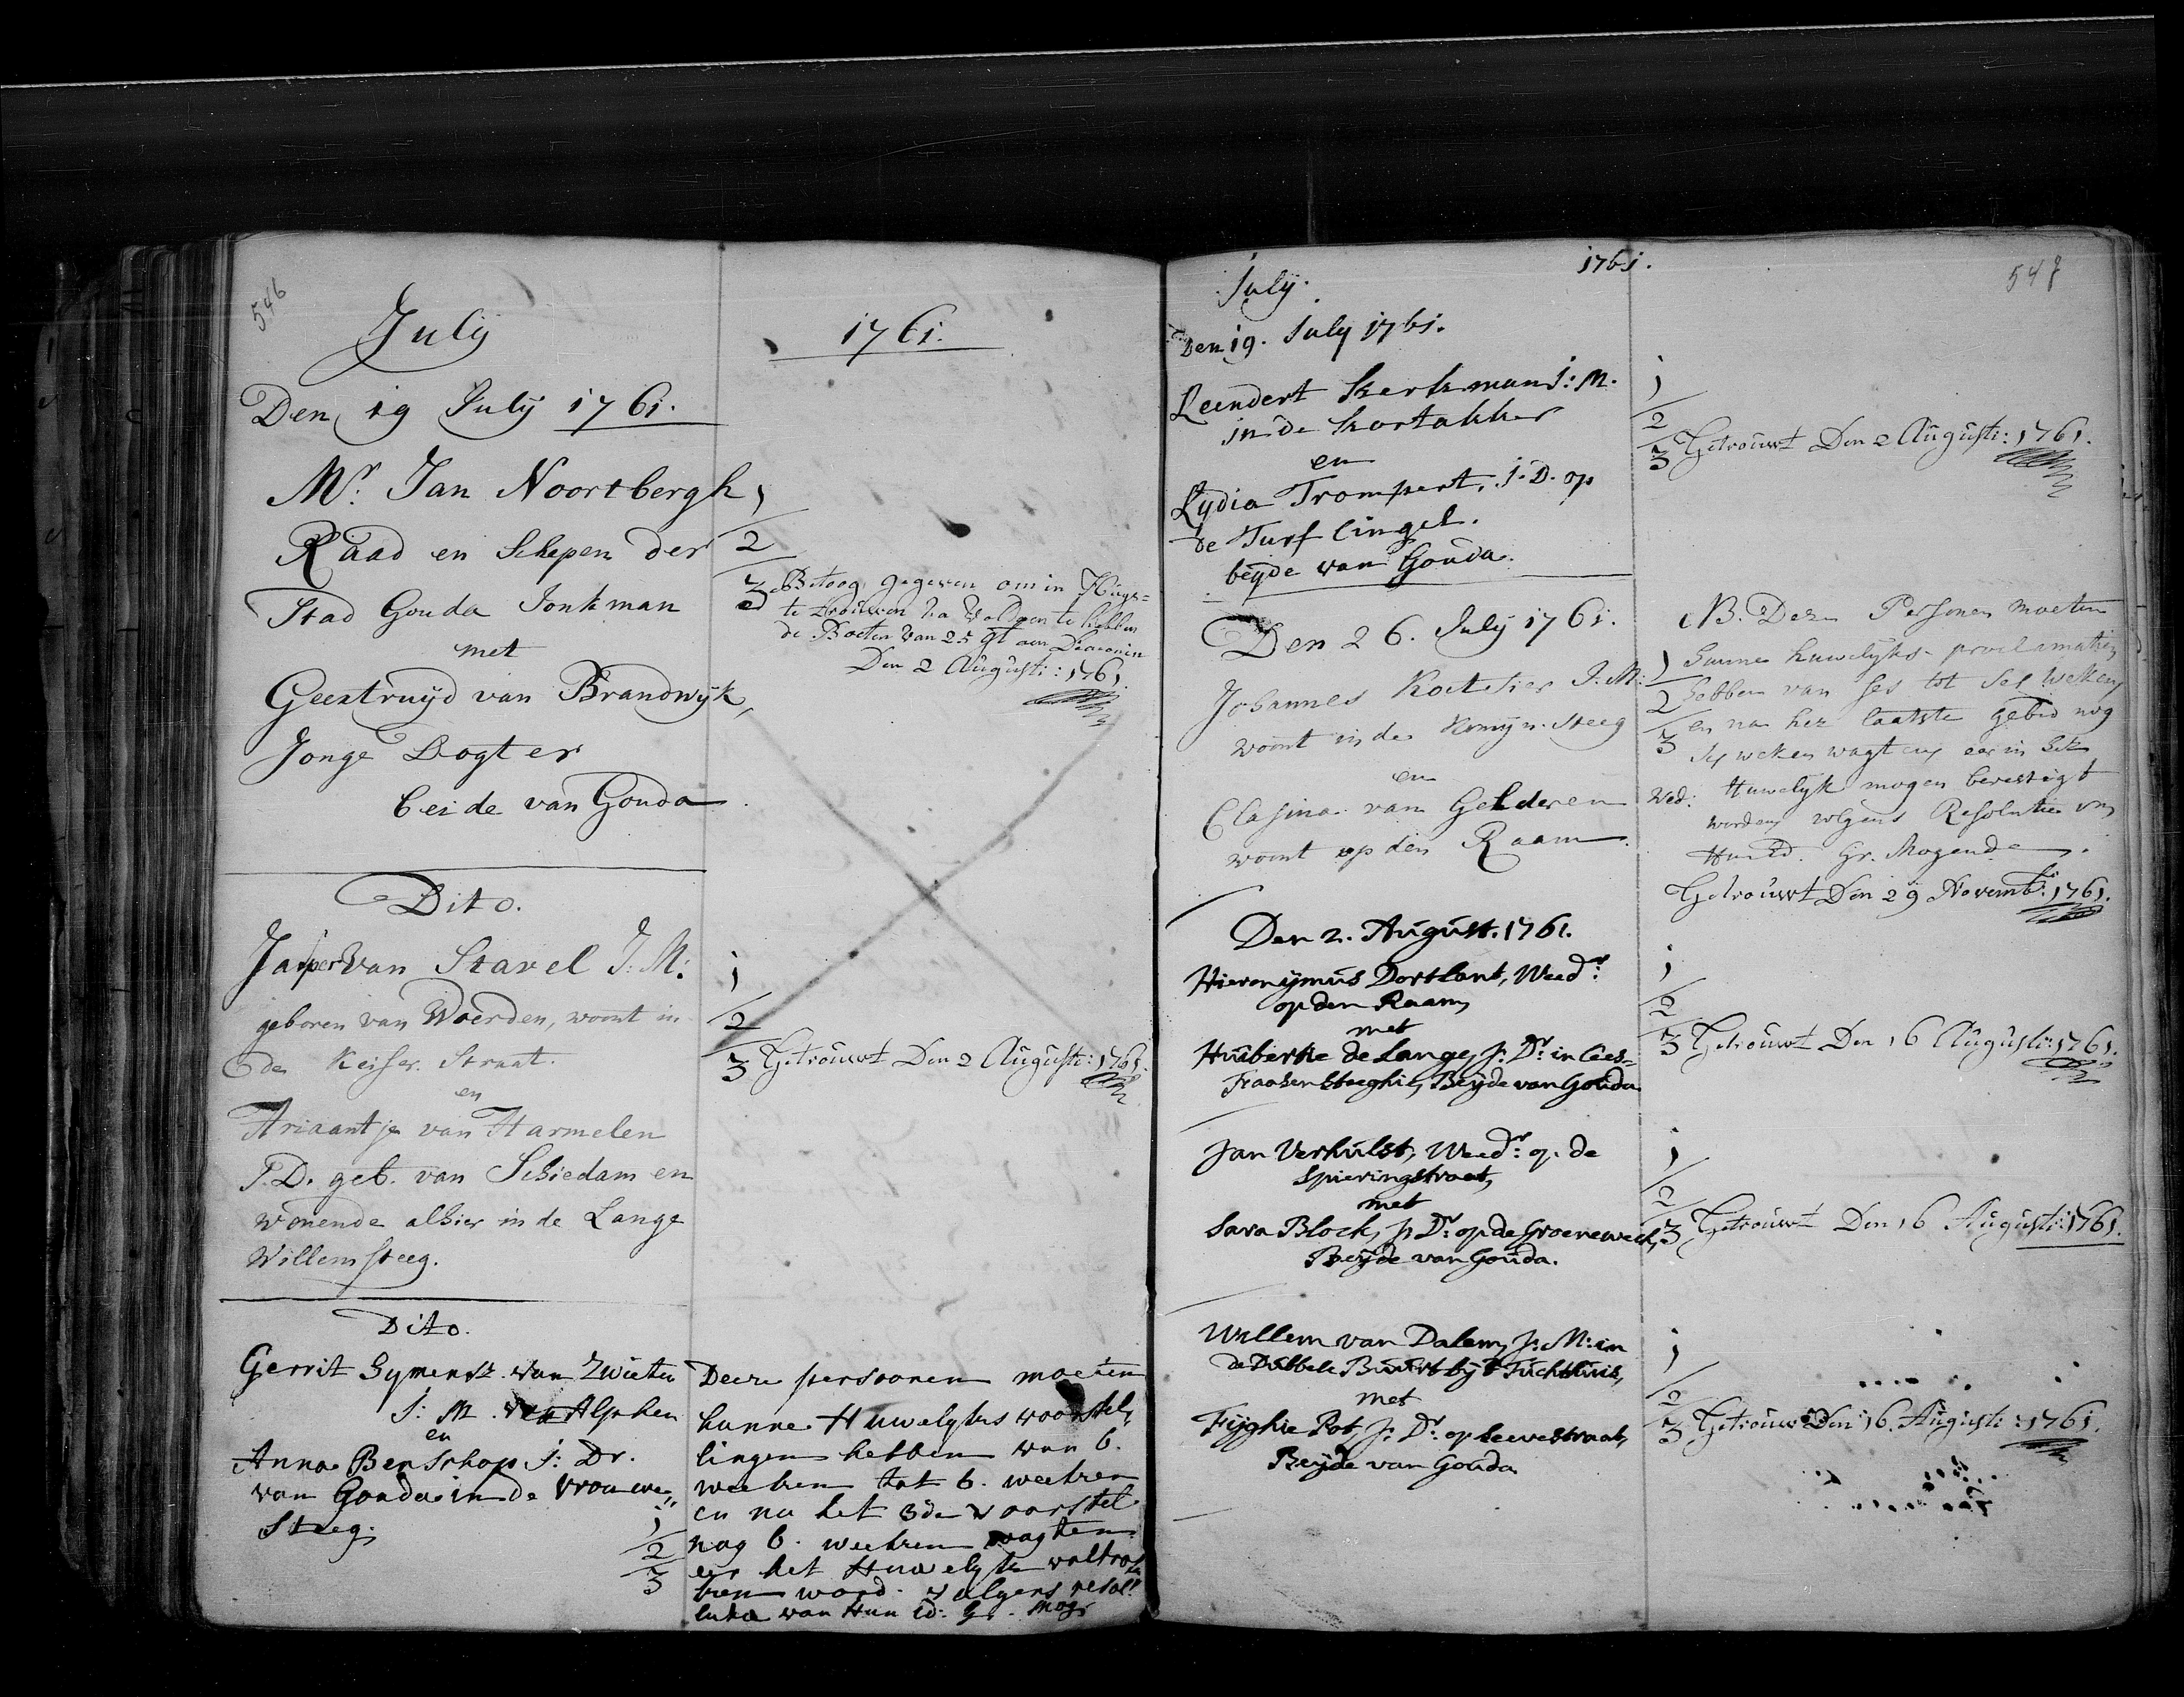 546
July
1761.
Den 19 July 1761.
Mr. Jan Noortbergh
Raad en Schepen der
Stad Gouda Jonkman
met
Geertruijd van Brandwijk,
Jonge Dogter
beide van Gouda
1
2
3 Betoog gegeven om in Huys=
te trouwen na voldaen te hebben
de Boeten van 25 gl aen Diaconin
Den 2 Augusti: 1761.
Dito.
Jasper van Stavel J: M:
geboren van Woerden, woont in
de Keiser Straat.
en
Ariaantje van Harmelen
J. D. geb. van Schiedam en
wonende alhier in de Lange
Willemsteeg.
1
2
3 Getrouwt Den 2 Augusti: 1761.
Dito.
Gerrit Symensz. van Zwieten
J: M. van Alphen
en
Anna Benschop J: Dr.
van Gouda in de Vrouwe„
Steeg.
1
2
3
Deeze persoonen moeten
hunne Huwelyks voorstel„
lingen hebben van 6.
weeken tot 6. weeken
en na het 3de voorstel
nog 6. weeken wagten
eer het Huwelyk voltrok
ken word. volgens resol
lutie van Hun Ed: Gr. Mog:
July. 1761. 547
Den 19. July 1761.
Leendert Kerkman J: M.
in de Kortakker
en
Lydia Trompert, J. D. op
de Turf Cingel.
beyde van Gouda.
1
2
3 Getrouwt Den 2 Augusti: 1761.
Den 26. July 1761.
Johannes Koetsier J. M:
woont in de Komijn Steeg
en
Clasina van Gelderen Wed:
woont op den Raam.
1
2
3
NB. Deze Personen moeten
hunne huwelyks-proclamatien
hebben van ses tot ses weken
en na het laatste gebod nog
ses weken wagten eer in het
Huwelyk mogen bevestigt
worden volgens Resolutie van
Hun Ed. Gr. Mogende.
Getrouwt Den 29 Novemb: 1761.
Den 2. August. 1761.
Hieronymus Dortlant, Weedr:
op den Raam,
met
Huibertie de Lange, J: Dr: in Cees-
Fraasensteeghie, Beyde van Gouda
1
2
3 Getrouwt Den 16 Augusti: 1761.
Jan Verhulst, Weedr: op de
Spieringstraat,
met
Sara Block, J: Dr: op de Groeneweeh,
Beyde van Gouda.
1
2
3 Getrouwt Den 16 Augusti: 1761.
Willem van Dalem, J: M: in
de Dubbele Buurt by 't Tuchthuis,
met
Fijghie Pot, J: Dr: op Leevestraat,
Beyde van Gouda
1
2
3 Getrouwt Den 16. Augusti: 1761.